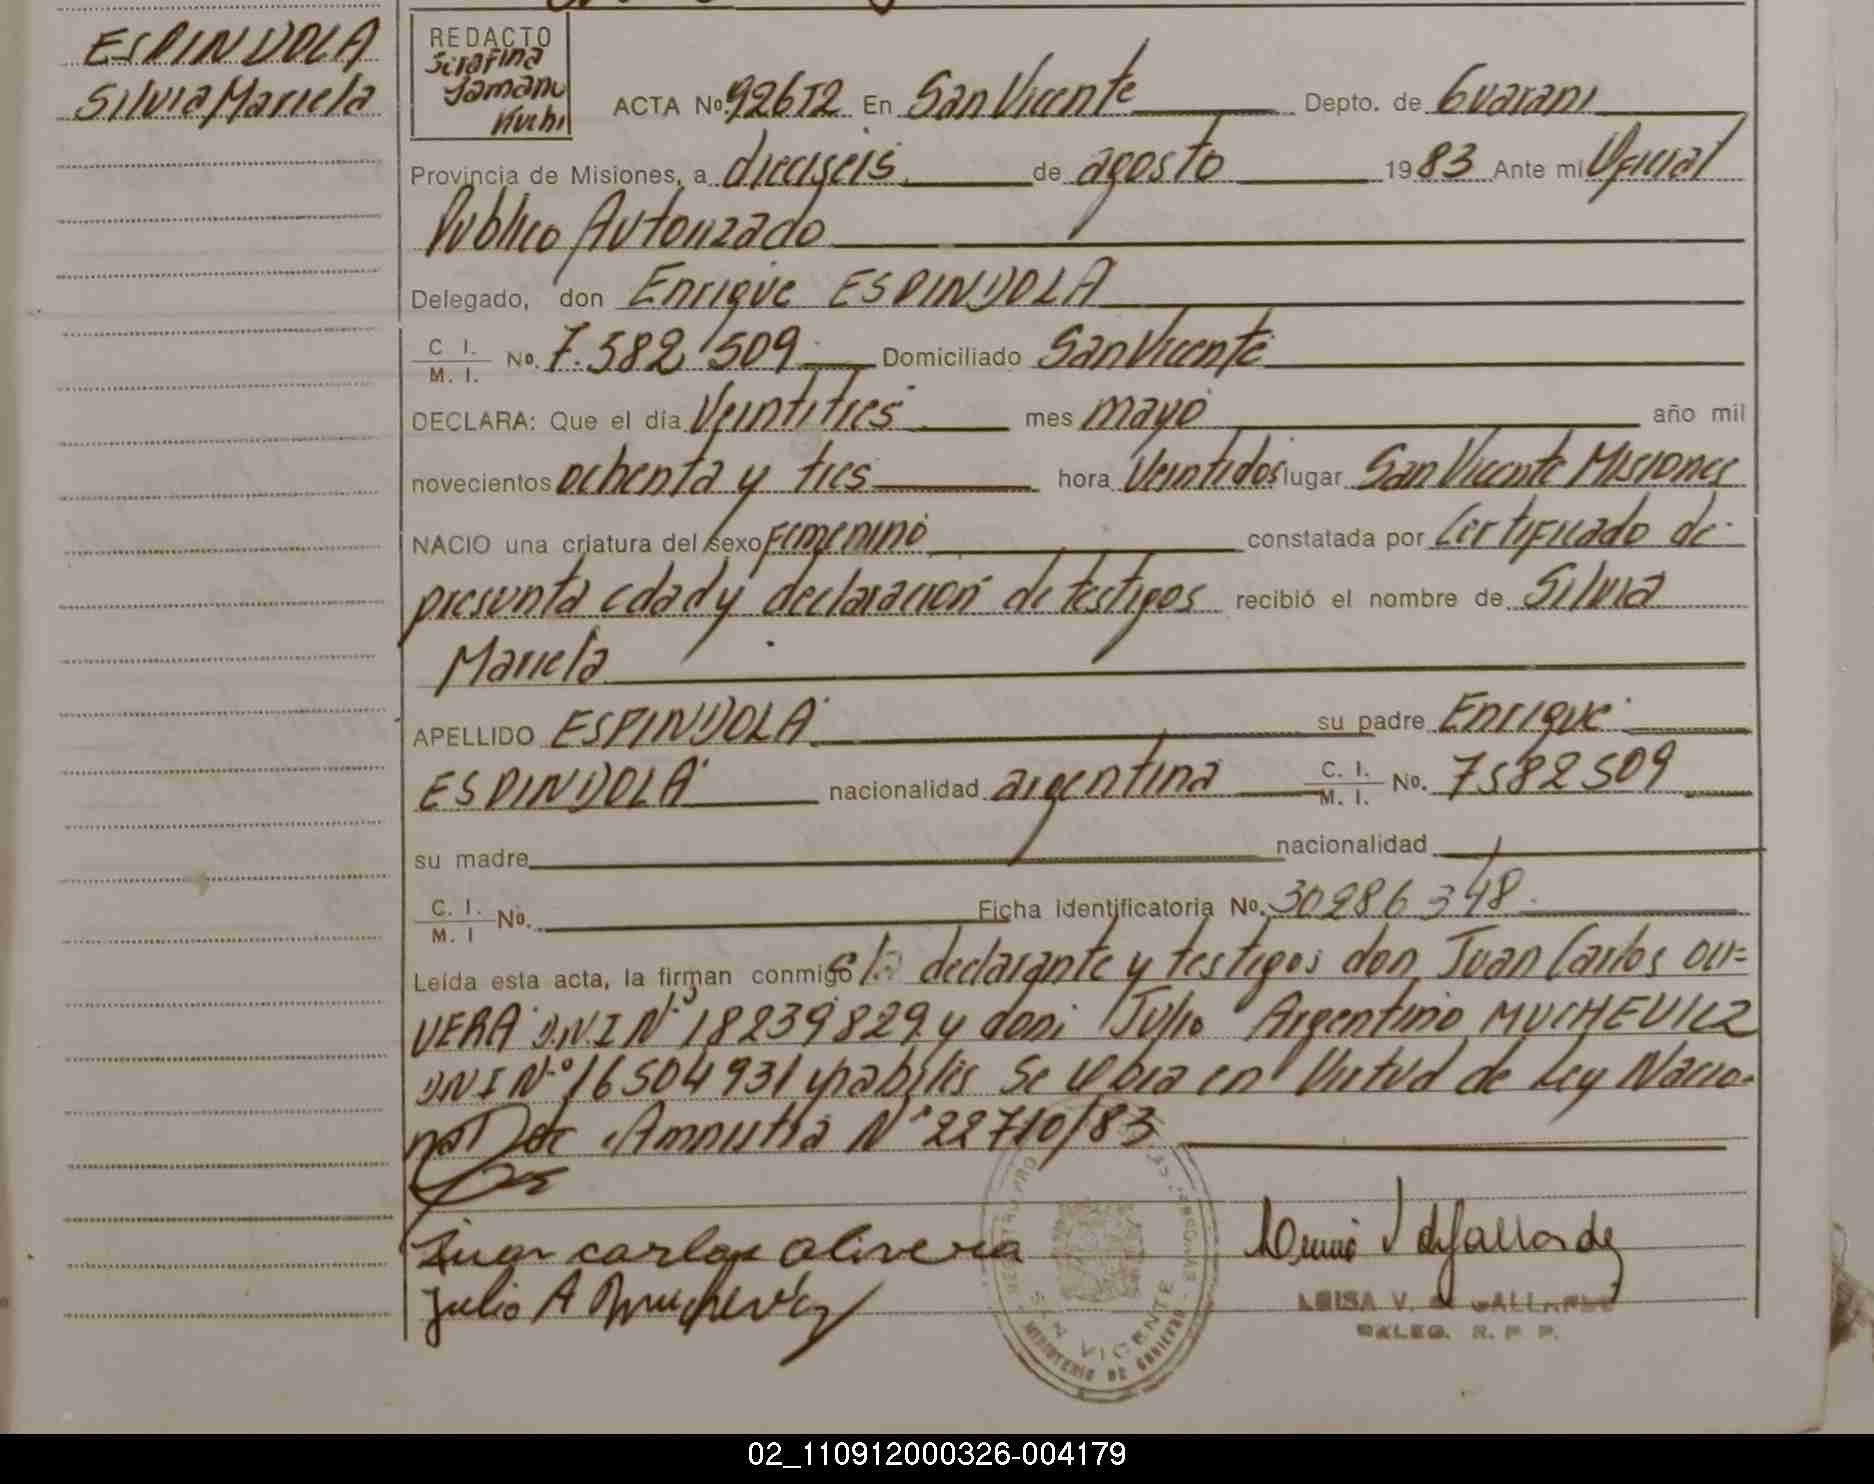 ESPINDOLA
Silvia Mariela
REDACTO
Serafina
Kuchi
ACTA No. 926T2 En San Vicente Depto. de Guarani
Provincia de Misiones, a dieciseis de agosto 1983 Ante mi Oficial
Publico Autorizado
Delegado, don Enrique ESPINDOLA
C. I.
M. I. No. 7.582.509 Domiciliado San Vicente
DECLARA: Que el día Veintitres mes mayo año mil
novecientos ochenta y tres hora Veintidos lugar San Vicente Misiones
NACIO una criatura del sexo Femenino constatada por Certificado de
presunta edad y declaración de testigos recibió el nombre de Silvia
Mariela
APELLIDO ESPINDOLA su padre Enrique
ESPINDOLA nacionalidad argentina C. I.
M. I. No. 7582509
su madre nacionalidad
C. I.
M. I No. Ficha identificatoria No. 30286348
Leída esta acta, la firman conmigo el declarante y testigos don Juan Carlos OLI=
VERA D.N.I Nº 18239829 y don Julio Argentino MUCHEVICZ
DNI Nº 16504931 habiles Se labra en Virtud de Ley Nacio-
nal de Amnistia Nº 22710/83
Juan carlos olivera
Julio A Muchevicz
SAN VICENTE
MINISTERIO DE GOBIERNO
LUISA V. de GALLARDO
DELEG. R. P. P.
02_110912000326-004179